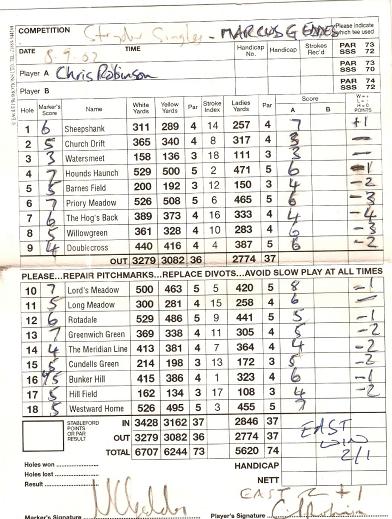 COMPETITION Singles - MARCUS G Please indicate which tee used
DATE 8.9.02 TIME Handicap No. Handicap Strokes Rec'd PAR 73 SSS 72
Player A Chris Robinson PAR 73 SSS 70
Player B PAR 74 SSS 72
Hole Marker's Score Name White Yards Yellow Yards Par Stroke Index Ladies Yards Par Score A B W = + L = - H = O POINTS
1 6 Sheepshank 311 289 4 14 257 4 7 +1
2 5 Church Drift 365 340 4 8 317 4 3 -
3 3 Watersmeet 158 136 3 18 111 3 3 -
4 7 Hounds Haunch 529 500 5 2 471 5 6 -1
5 5 Barnes Field 200 192 3 12 150 3 4 -2
6 7 Priory Meadow 526 508 5 6 465 5 6 -3
7 6 The Hog's Back 389 373 4 16 333 4 4 -4
8 5 Willowgreen 361 328 4 10 283 4 6 -3
9 4 Doublecross 440 416 4 4 387 5 6 -2
OUT 3279 3082 36 2774 37
PLEASE...REPAIR PITCHMARKS...REPLACE DIVOTS...AVOID SLOW PLAY AT ALL TIMES
10 7 Lord's Meadow 500 463 5 5 420 5 8 -1
11 5 Long Meadow 300 281 4 15 258 4 6 -
12 6 Rotadale 529 486 5 9 441 5 5 -1
13 7 Greenwich Green 369 338 4 11 305 4 5 -2
14 4 The Meridian Line 413 381 4 7 364 4 4 -2
15 5 Cundells Green 214 198 3 13 172 3 5 -2
16 5 Bunker Hill 415 386 4 1 323 4 6 -1
17 5 Hill Field 162 134 3 17 108 3 4 -2
18 5 Westward Home 526 495 5 3 455 5 7
STABLEFORD POINTS OR PAR RESULT IN 3428 3162 37 2846 37 EAST
OUT 3279 3082 36 2774 37 WIN
TOTAL 6707 6244 73 5620 74 2/1
Holes won HANDICAP
Holes lost NETT
Result EAST 2 +1
Marker's Signature Player's Signature